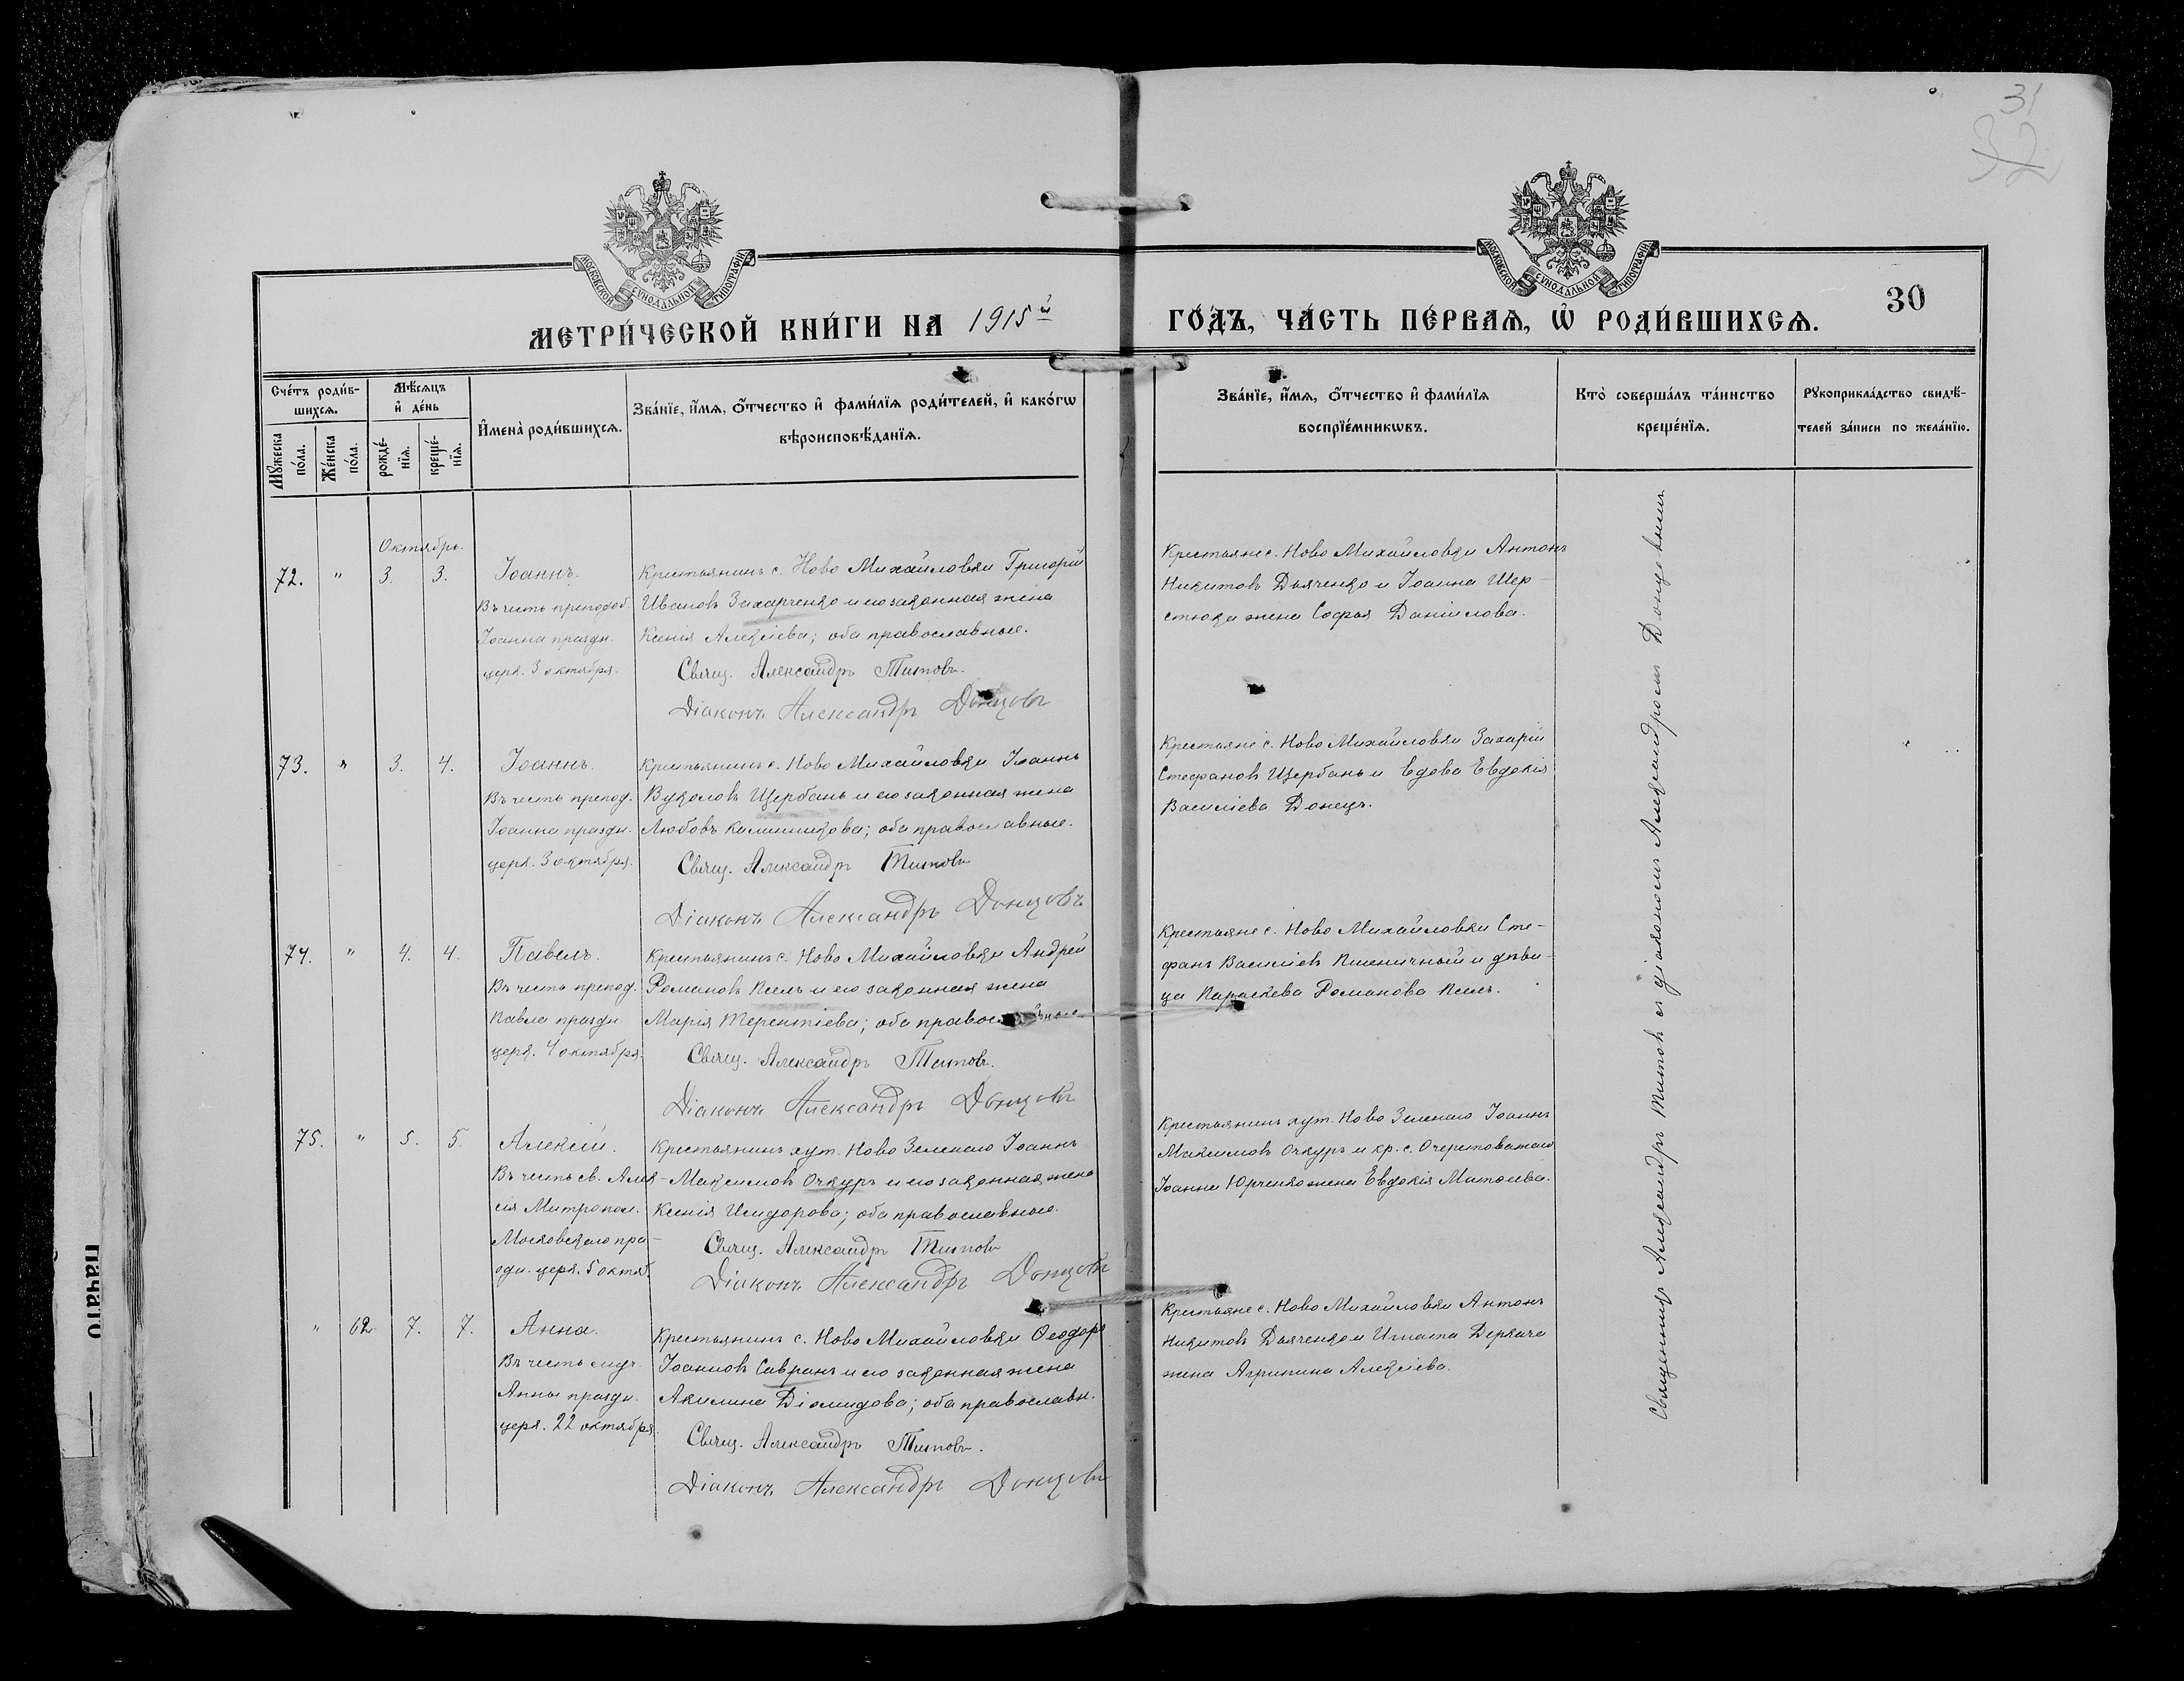 31
32
МОСКОВСКОЙ СѴНОДАЛЬНОЙ ТИПОГРАФІИ
МОСКОВСКОЙ СѴНОДАЛЬНОЙ ТИПОГРАФІИ
МЕТРИ́ЧЕСКОЙ КНИ́ГИ НА 1915й
ГО́ДЪ, ЧА́СТЬ ПЕ́РВАѦ, Ѡ҆ РОДИ́ВШИХСѦ.
30
Сче́тъ роди́в-
шихсѧ.
Мꙋ́жеска
по́ла.
Же́нска
по́ла.
Мѣ́сѧцъ
и҆ де́нь
рожде́-
нїѧ.
креще́-
нїѧ.
И҆мена̀ роди́вшихсѧ.
Зва́нїе, и҆́мѧ, ѻ҆́тчество и҆ фами́лїѧ роди́телей, и҆ како́гѡ
вѣроисповѣ́данїѧ.
Зва́нїе, и҆́мѧ, ѻ҆́тчество и҆ фами́лїѧ
воспрїе́мникѡвъ.
Кто̀ соверша́лъ та́инство
креще́нїѧ.
Рꙋкоприкла́дство свидѣ́-
телей за́писи по жела́нїю.
Октябрь.
72. " 3. 3.
Іоаннъ.
Въ честь преподоб.
Іоанна праздн.
церк. 3 октября.
Крестьянинъ с. Ново Михайловки Григорій
Ивановъ Захарченко и его законная жена
Ксенія Алексіева; оба православные.
Свящ. Александръ Титовъ.
Діаконъ Александръ Донцовъ
Крестьяне с. Ново Михайловки Антонъ
Никитовъ Дьяченко и Іоанна Шер-
стюка жена Софья Даніилова.
73. " 3. 4.
Іоаннъ.
Въ честь препод.
Іоанна праздн.
церк. 3 октября.
Крестьянинъ с. Ново Михайловки Іоаннъ
Вуколовъ Щербань и его законная жена
Любовь Каллиникова; оба православные.
Свящ. Александръ Титовъ
Діаконъ Александръ Донцовъ
Крестьяне с. Ново Михайловки Захарій
Стефановъ Щербань и вдова Евдокія
Василіева Донецъ.
74. " 4. 4.
Павелъ.
Въ честь препод.
Павла праздн.
церк. 4 октября.
Крестьянинъ с. Ново Михайловки Андрей
Романовъ Кисль и его законная жена
Марія Терентіева; оба православные
Свящ. Александръ Титовъ.
Діаконъ Александръ Донцовъ
Крестьяне с. Ново Михайловки Сте-
фанъ Василіевъ Пшеничный и дѣви-
ца Параскева Романова
75. " 5. 5.
Алексій.
Въ честь св. Алек-
сія Митропол.
Московскаго пра-
здн. церк. 5 октяб.
Крестьянинъ хут. Ново Зеленаго Іоаннъ
Максимовъ Очкуръ и его законная жена
Ксенія Исидорова; оба православные.
Свящ. Александръ Титовъ
Діаконъ Александръ Донцовъ
Крестьянинъ хут. Ново Зеленаго Іоаннъ
Максимовъ Очкуръ и кр. с. Очеретоватаго
Іоанна Юрченко жена Евдокія
" 62 7. 7.
Анна.
Въ честь муч.
Анны праздн.
церк. 22 октября.
Крестьянинъ с. Ново Михайловки Ѳеодоръ
Іоанновъ Савранъ и его законная жена
Акилина Діомидова; оба православн.
Свящ. Александръ Титовъ.
Діаконъ Александръ Донцовъ
Крестьяне с. Ново Михайловки Антонъ
Никитовъ Дьяченко и Игната Деркача
жена Агрипина Алексіева.
Священникъ Александръ Титовъ съ діакономъ Александромъ Донцовымъ
Начато